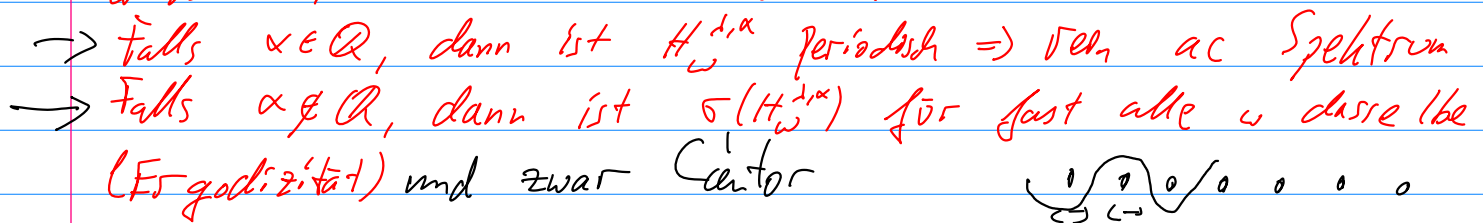 → Falls α ∈ Q, dann ist H_ω^{λ,α} periodisch ⇒ rein ac Spektrum
→ Falls α ∉ Q, dann ist σ(H_ω^{λ,α}) für fast alle ω dasselbe
(Ergodizität) und zwar Cantor